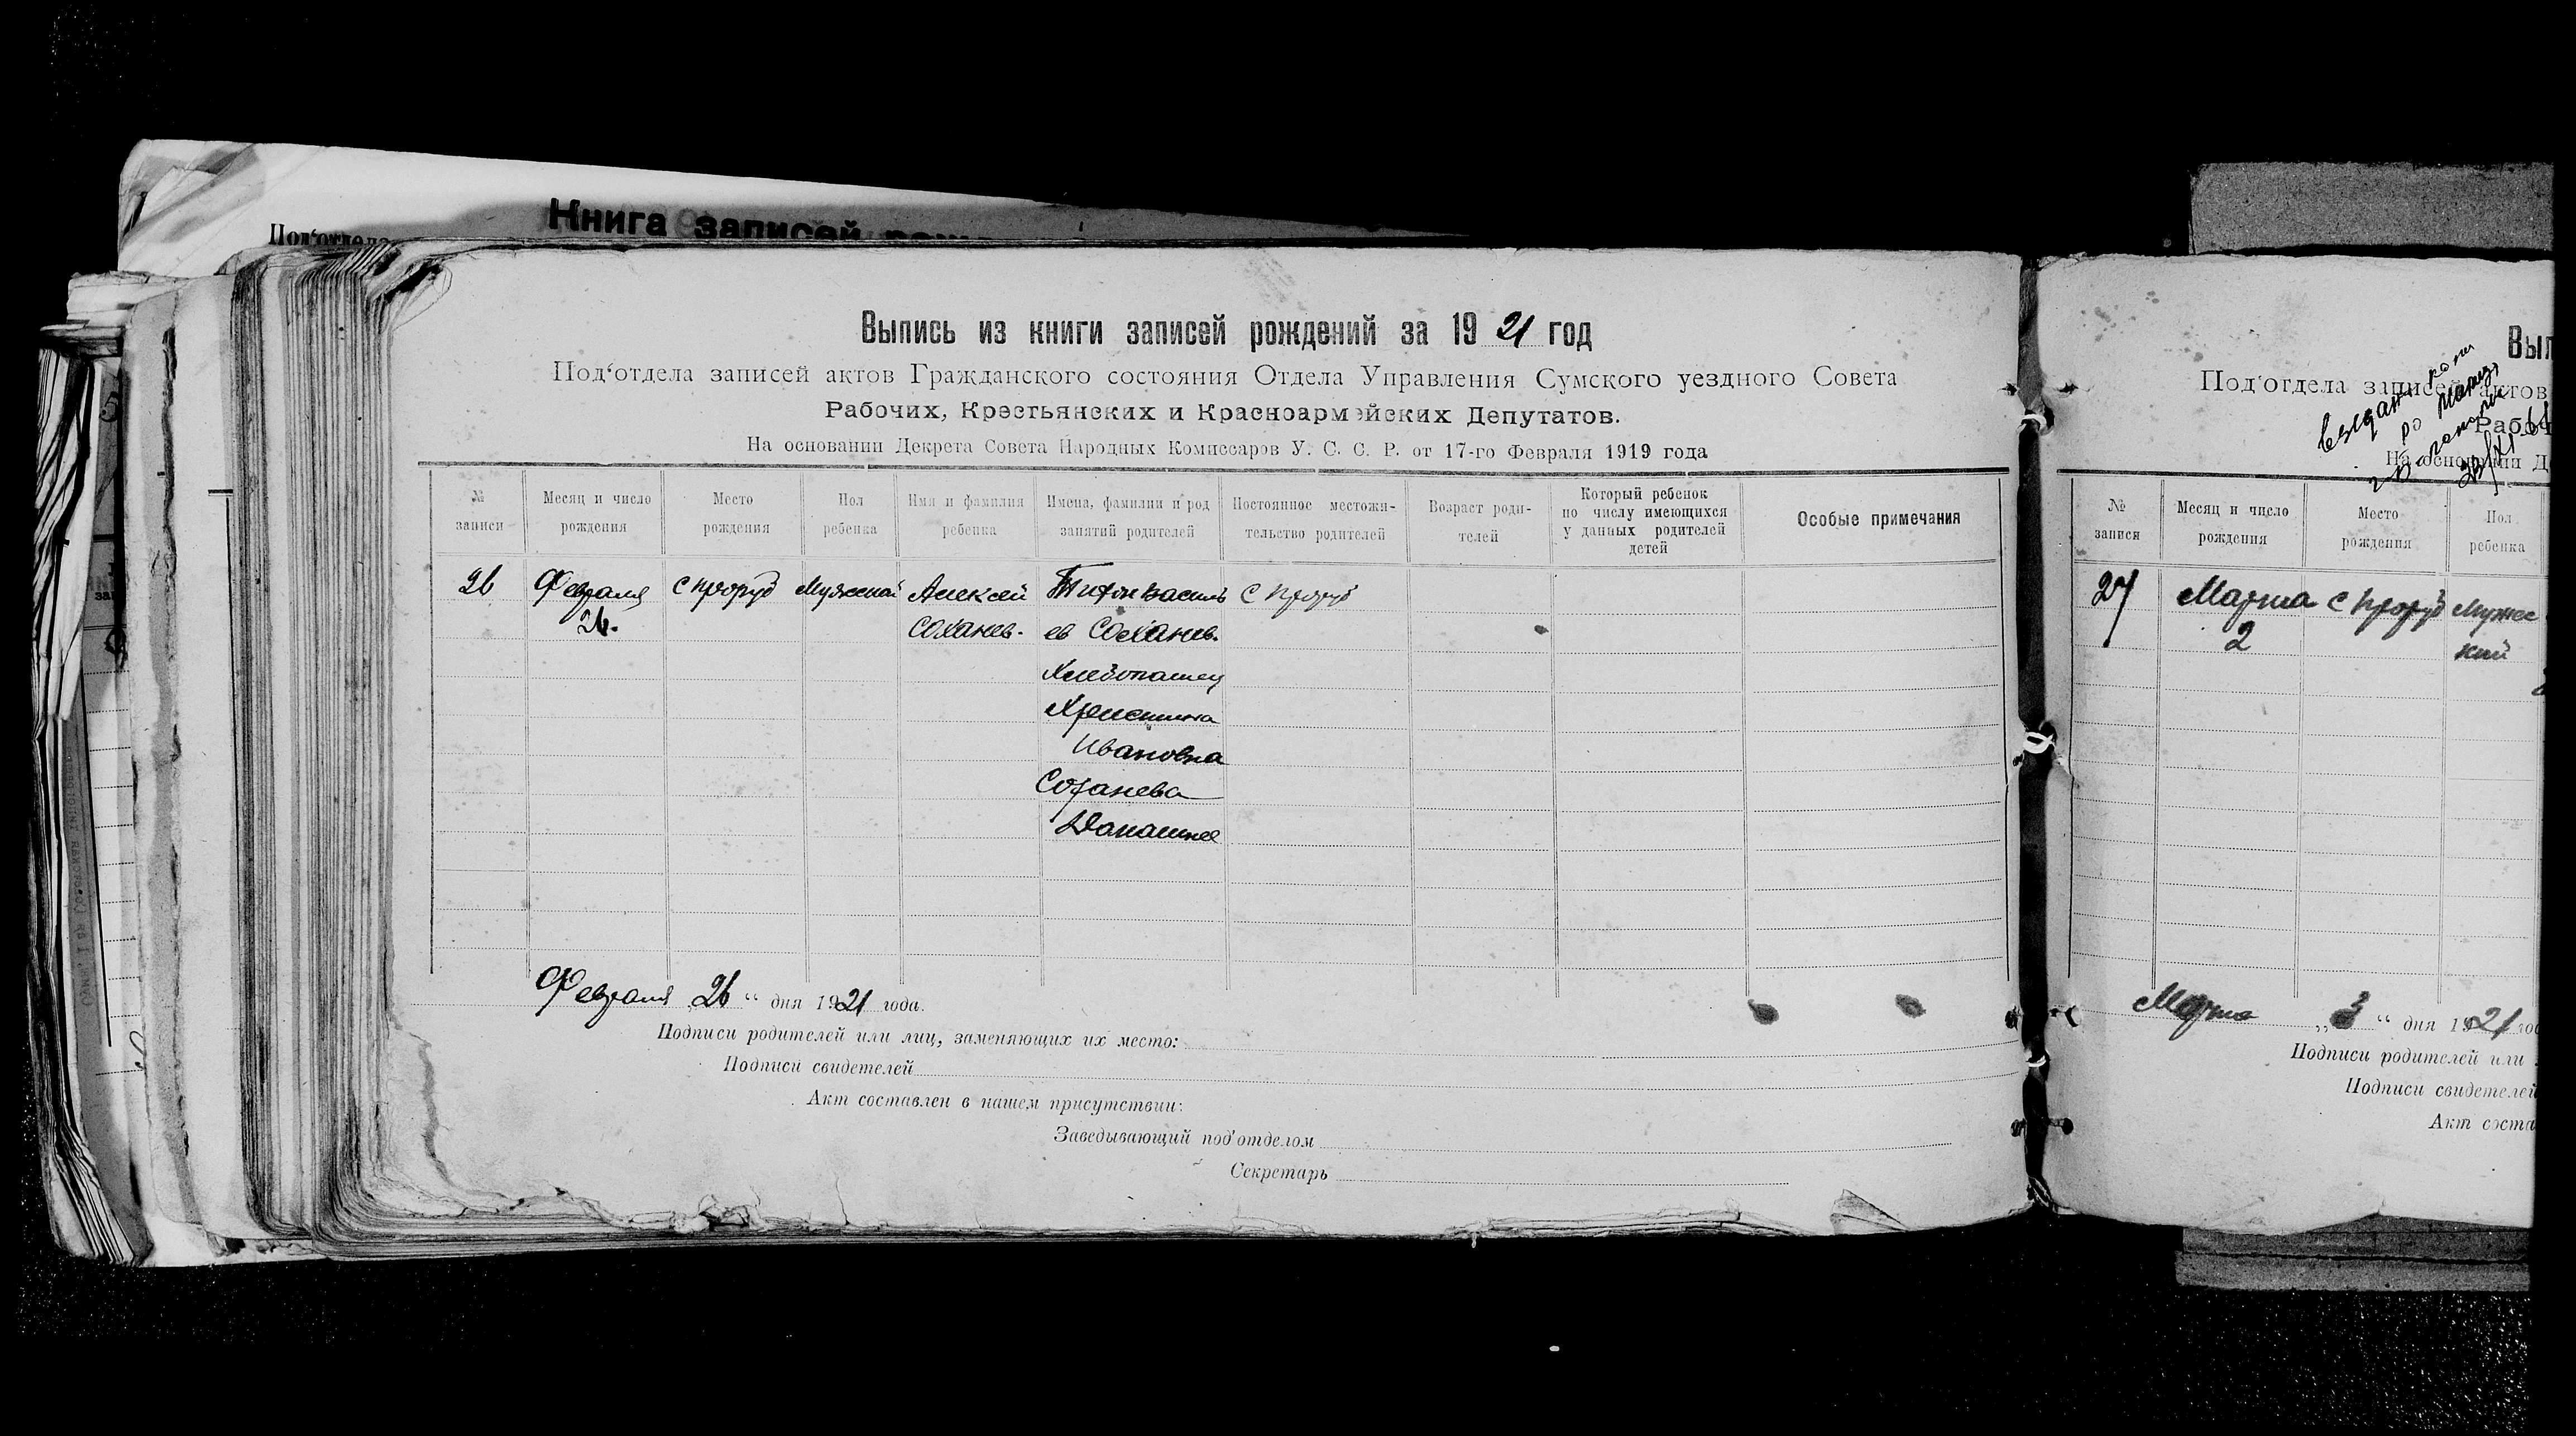 Под‘отдела
Книга записей
Выпись из книги записей рождений за 1921 год
Под‘отдела записей актов Гражданского состояния Отдела Управления Сумского уездного Совета
Рабочих, Крестьянских и Красноармейских Депутатов.
На основании Декрета Совета Народных Комиссаров У. С. С. Р. от 17-го Февраля 1919 года
№ записи
Месяц и число рождения
Место рождения
Пол ребенка
Имя и фамилия ребенка
Имена, фамилии и род занятий родителей
Постоянное местожи-
тельство родителей
Возраст роди-
телей
Который ребенок
по числу имеющихся
у данных родителей
детей
Особые примечания
26 Февраля с Проруб Мужской Алексей Тихон Василь с Проруб
26. Соханев. ев Соханев.
Хлебопашец
Христина
Ивановна
Соханева
Домашнее
Февраля 26 “ дня 1921 года.
Подписи родителей или лиц, заменяющих их место:
Подписи свидетелей
Акт составлен в нашем присутствии:
Заведывающий под‘отделом
Секретарь
Вып
Под‘отдела записей актов
Рабоч
На основании Д
№ записи
Месяц и число рождения
Место рождения
Пол ребенка
27 Марта с Проруб Мужес
2 кий
Марта „3“ дня 1921 год
Подписи родителей или
Подписи свидетелей
Акт соста